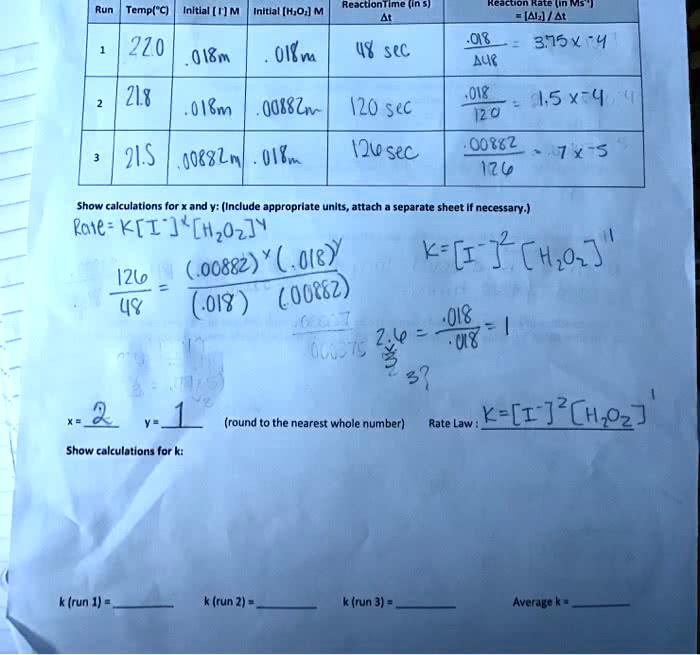 Run Temp(°C) Initial [I⁻] M Initial [H₂O₂] M Reaction Time (in s) Δt Reaction Rate (in Ms⁻¹) = [ΔI₂] / Δt
1 22.0 .018m .018m 48 sec .018 / Δ48 = 3.75 x -4
2 21.8 .018m .00882m 120 sec .018 / 120 = 1.5 x -4
3 21.5 .00882m .018m 126 sec .00882 / 126 = 7 x -5
Show calculations for x and y: (Include appropriate units, attach a separate sheet if necessary.)
Rate = K[I⁻]ˣ[H₂O₂]ʸ
K=[I⁻]²[H₂O₂]¹
126 / 48 = (.00882)ˣ(.018)ʸ / (.018) (.00882)
2.6 = .018 / .018 = 1
3?
x = 2 y = 1 (round to the nearest whole number) Rate Law : K=[I⁻]²[H₂O₂]¹
Show calculations for k:
k (run 1) = k (run 2) = k (run 3) = Average k =